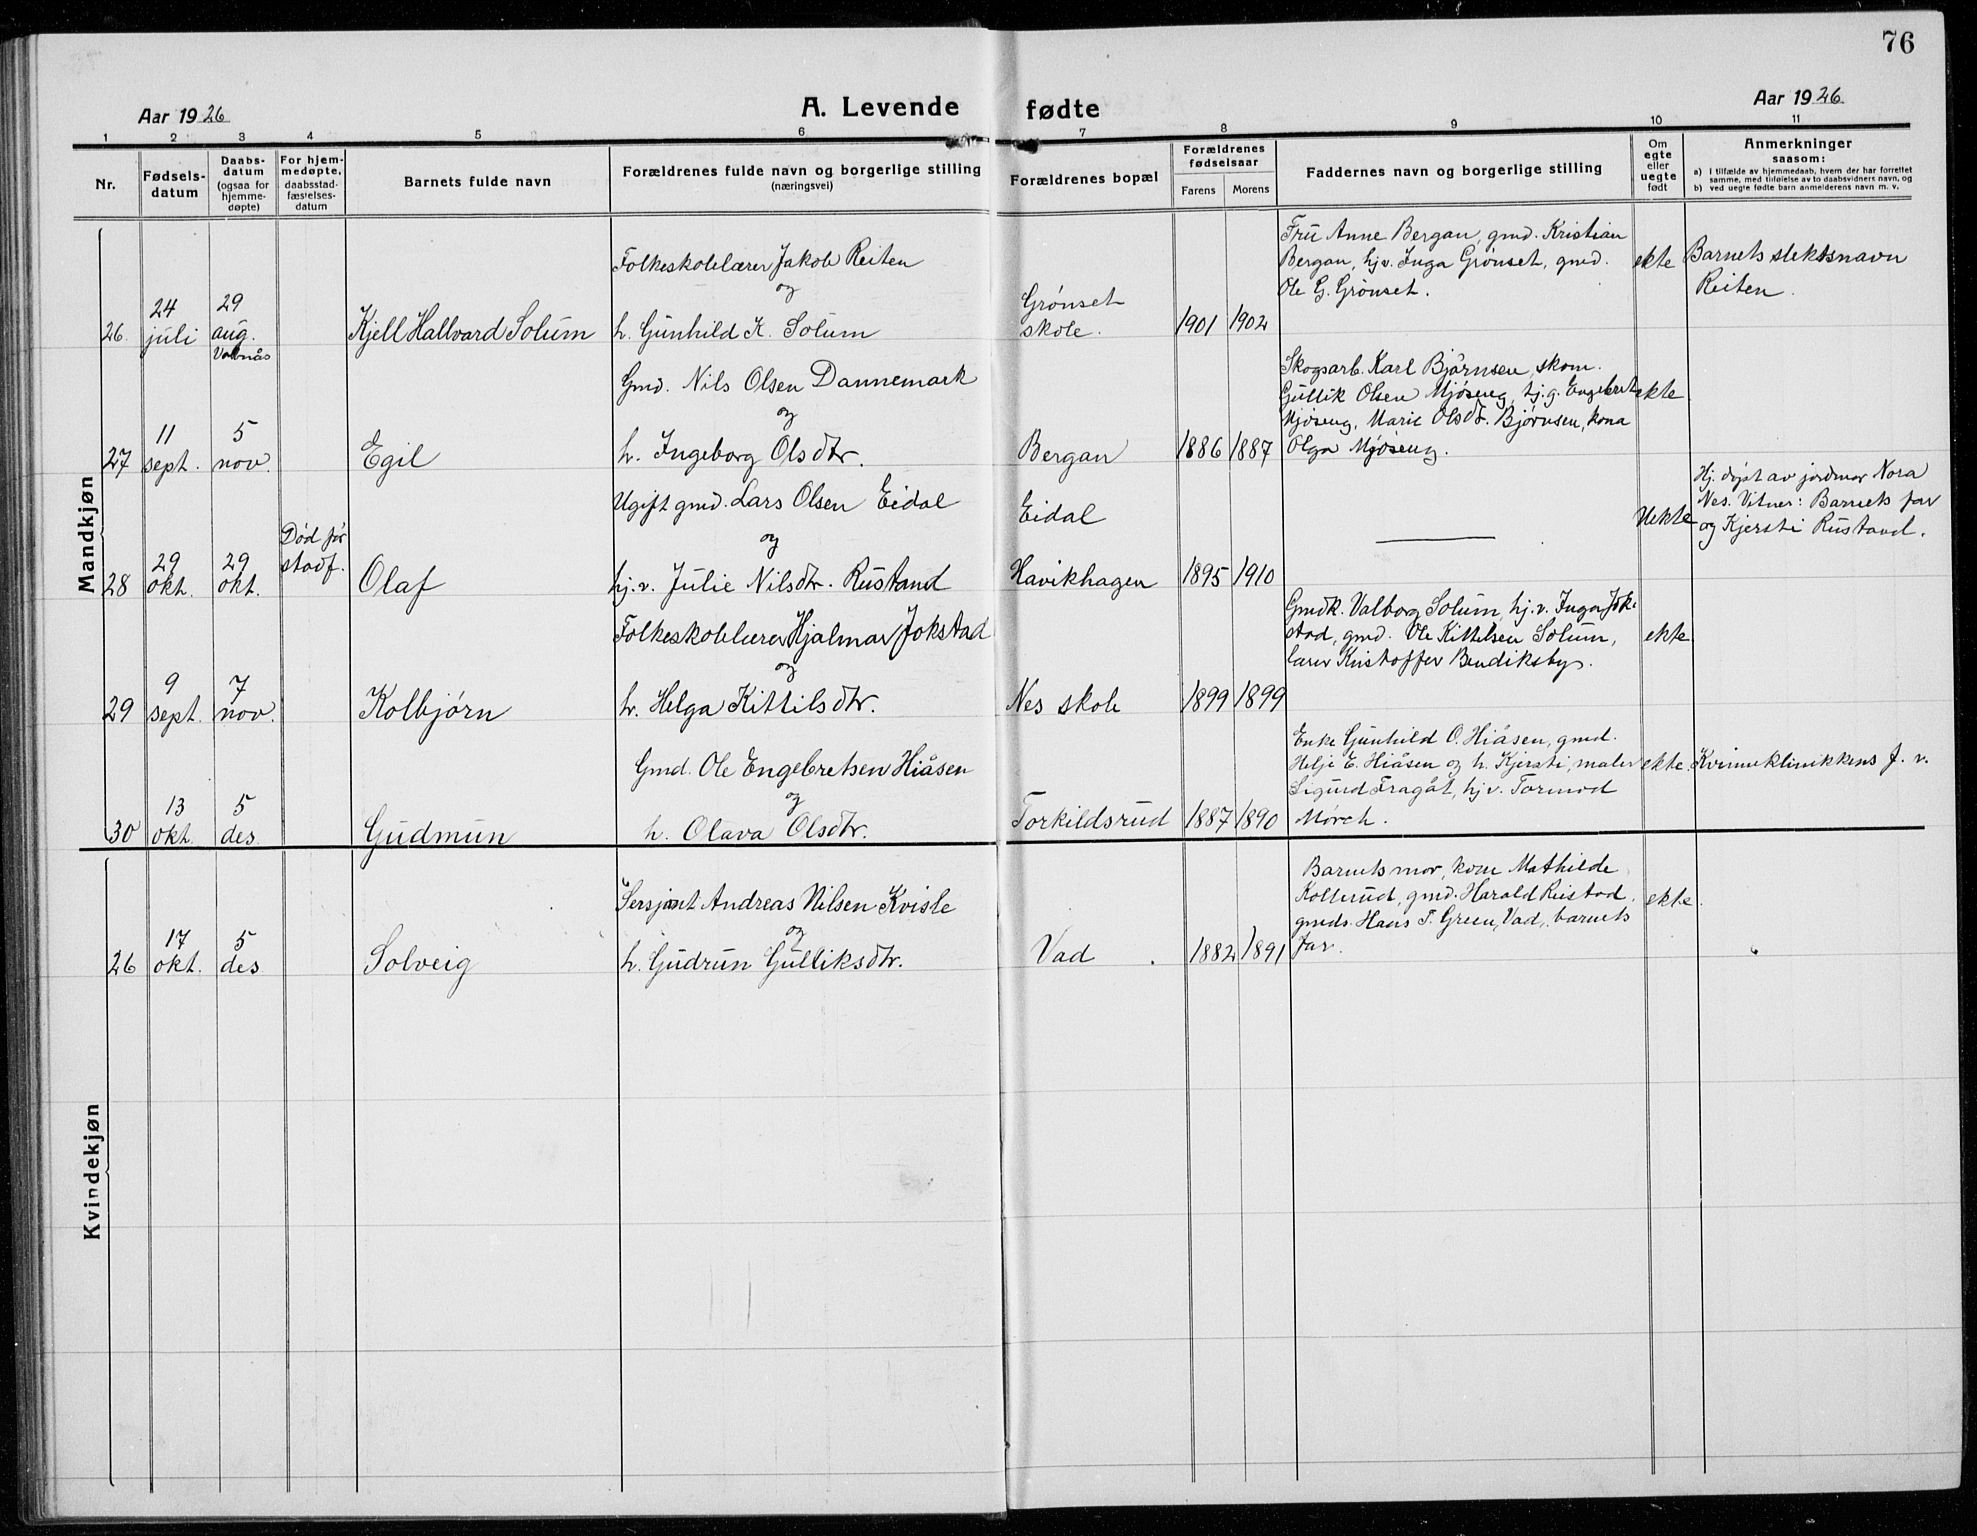 76
Aar 1926
A. Levende fødte
Aar 1926
1 2 3 4 5 6 7 8 9 10 11
Nr.
Fødsels-
datum
Daabs-
datum
(ogsaa for
hjemme-
døpte)
For hjem-
medøpte,
daabsstad-
fæstelses-
datum
Barnets fulde navn
Forældrenes fulde navn og borgerlige stilling
(næringsvei)
Forældrenes bopæl
Forældrenes
fødselsaar
Farens
Morens
Faddernes navn og borgerlige stilling
Om
egte
eller
uegte
født
Anmerkninger
saasom:
a) I tilfælde av hjemmedaab, hvem der har forrettet
samme, med tilføielse av to daabsvidners navn, og
b) ved uegte fødte barn anmelderens navn m. v.
Mandkjøn
26
24
juli
29
aug.
Kjell Hallvard Solum
Folkeskolelærer Jakob Reiten
og
h. Gunhild K. Solum
Grønset
skole.
1901
1902
Fru Anne Bergan, gmd. Kristian
Bergan, hj.v. Inga Grønset, gmd.
Ole G. Grønset.
ekte
Barnets slektsnavn
Reiten.
27
11
sept.
5
nov.
Egil
Gmd. Nils Olsen Dannemark
og
h. Ingeborg Olsdtr.
Bergan
1886
1887
Skogsarb. Karl Bjørnsen, skom.
Gullik Olsen Mjøseng, hj.g. Engebret
Mjøseng, Marie Olsdt. Bjørnsen, kona
Olga Mjøseng.
ekte
28
29
okt.
29
okt.
Død før
stadf.
Olaf
Ugift gmd. Lars Olsen Eidal
og
hj.v. Julie Nilsdtr. Rustand
Eidal
Havikhagen
1895
1910
Uekte
Hj. døpt av jordmor Nora
Nes. Vitner: Barnets far
og Kjersti Rustand.
29
9
sept.
7
nov.
Kolbjørn
Folkeskolelærer Hjalmar Jokstad
og
h. Helga Kittilsdtr.
Nes skole
1899
1899
Gmdk. Valborg Solum, hj.v. Inga Jok-
stad, gmd. Ole Kittelsen Solum,
lærer Kristoffer Bendiksby.
ekte
30
13
okt.
5
des.
Gudmun
Gmd. Ole Engebretsen Hiåsen
og
h. Olava Olsdtr.
Torkildsrud
1887
1890
Enke Gunhild O. Hiåsen, gmd.
Helje E. Hiåsen og h. Kjersti, maler
Sigurd Fragåt, hj.v. Tormod
Mørch.
ekte.
Kvinneklinikkens f. v.
Kvindekjøn
26
17
okt.
5
des
Solveig
Sersjant Andreas Nilsen Kvisle
og
h. Gudrun Gulliksdtr.
Vad
1882
1891
Barnets mor, kone Mathilde
Kolterud, gmd. Harald Reistad,
gmds. Hans T. Green, Vad, barnets
far.
ekte.